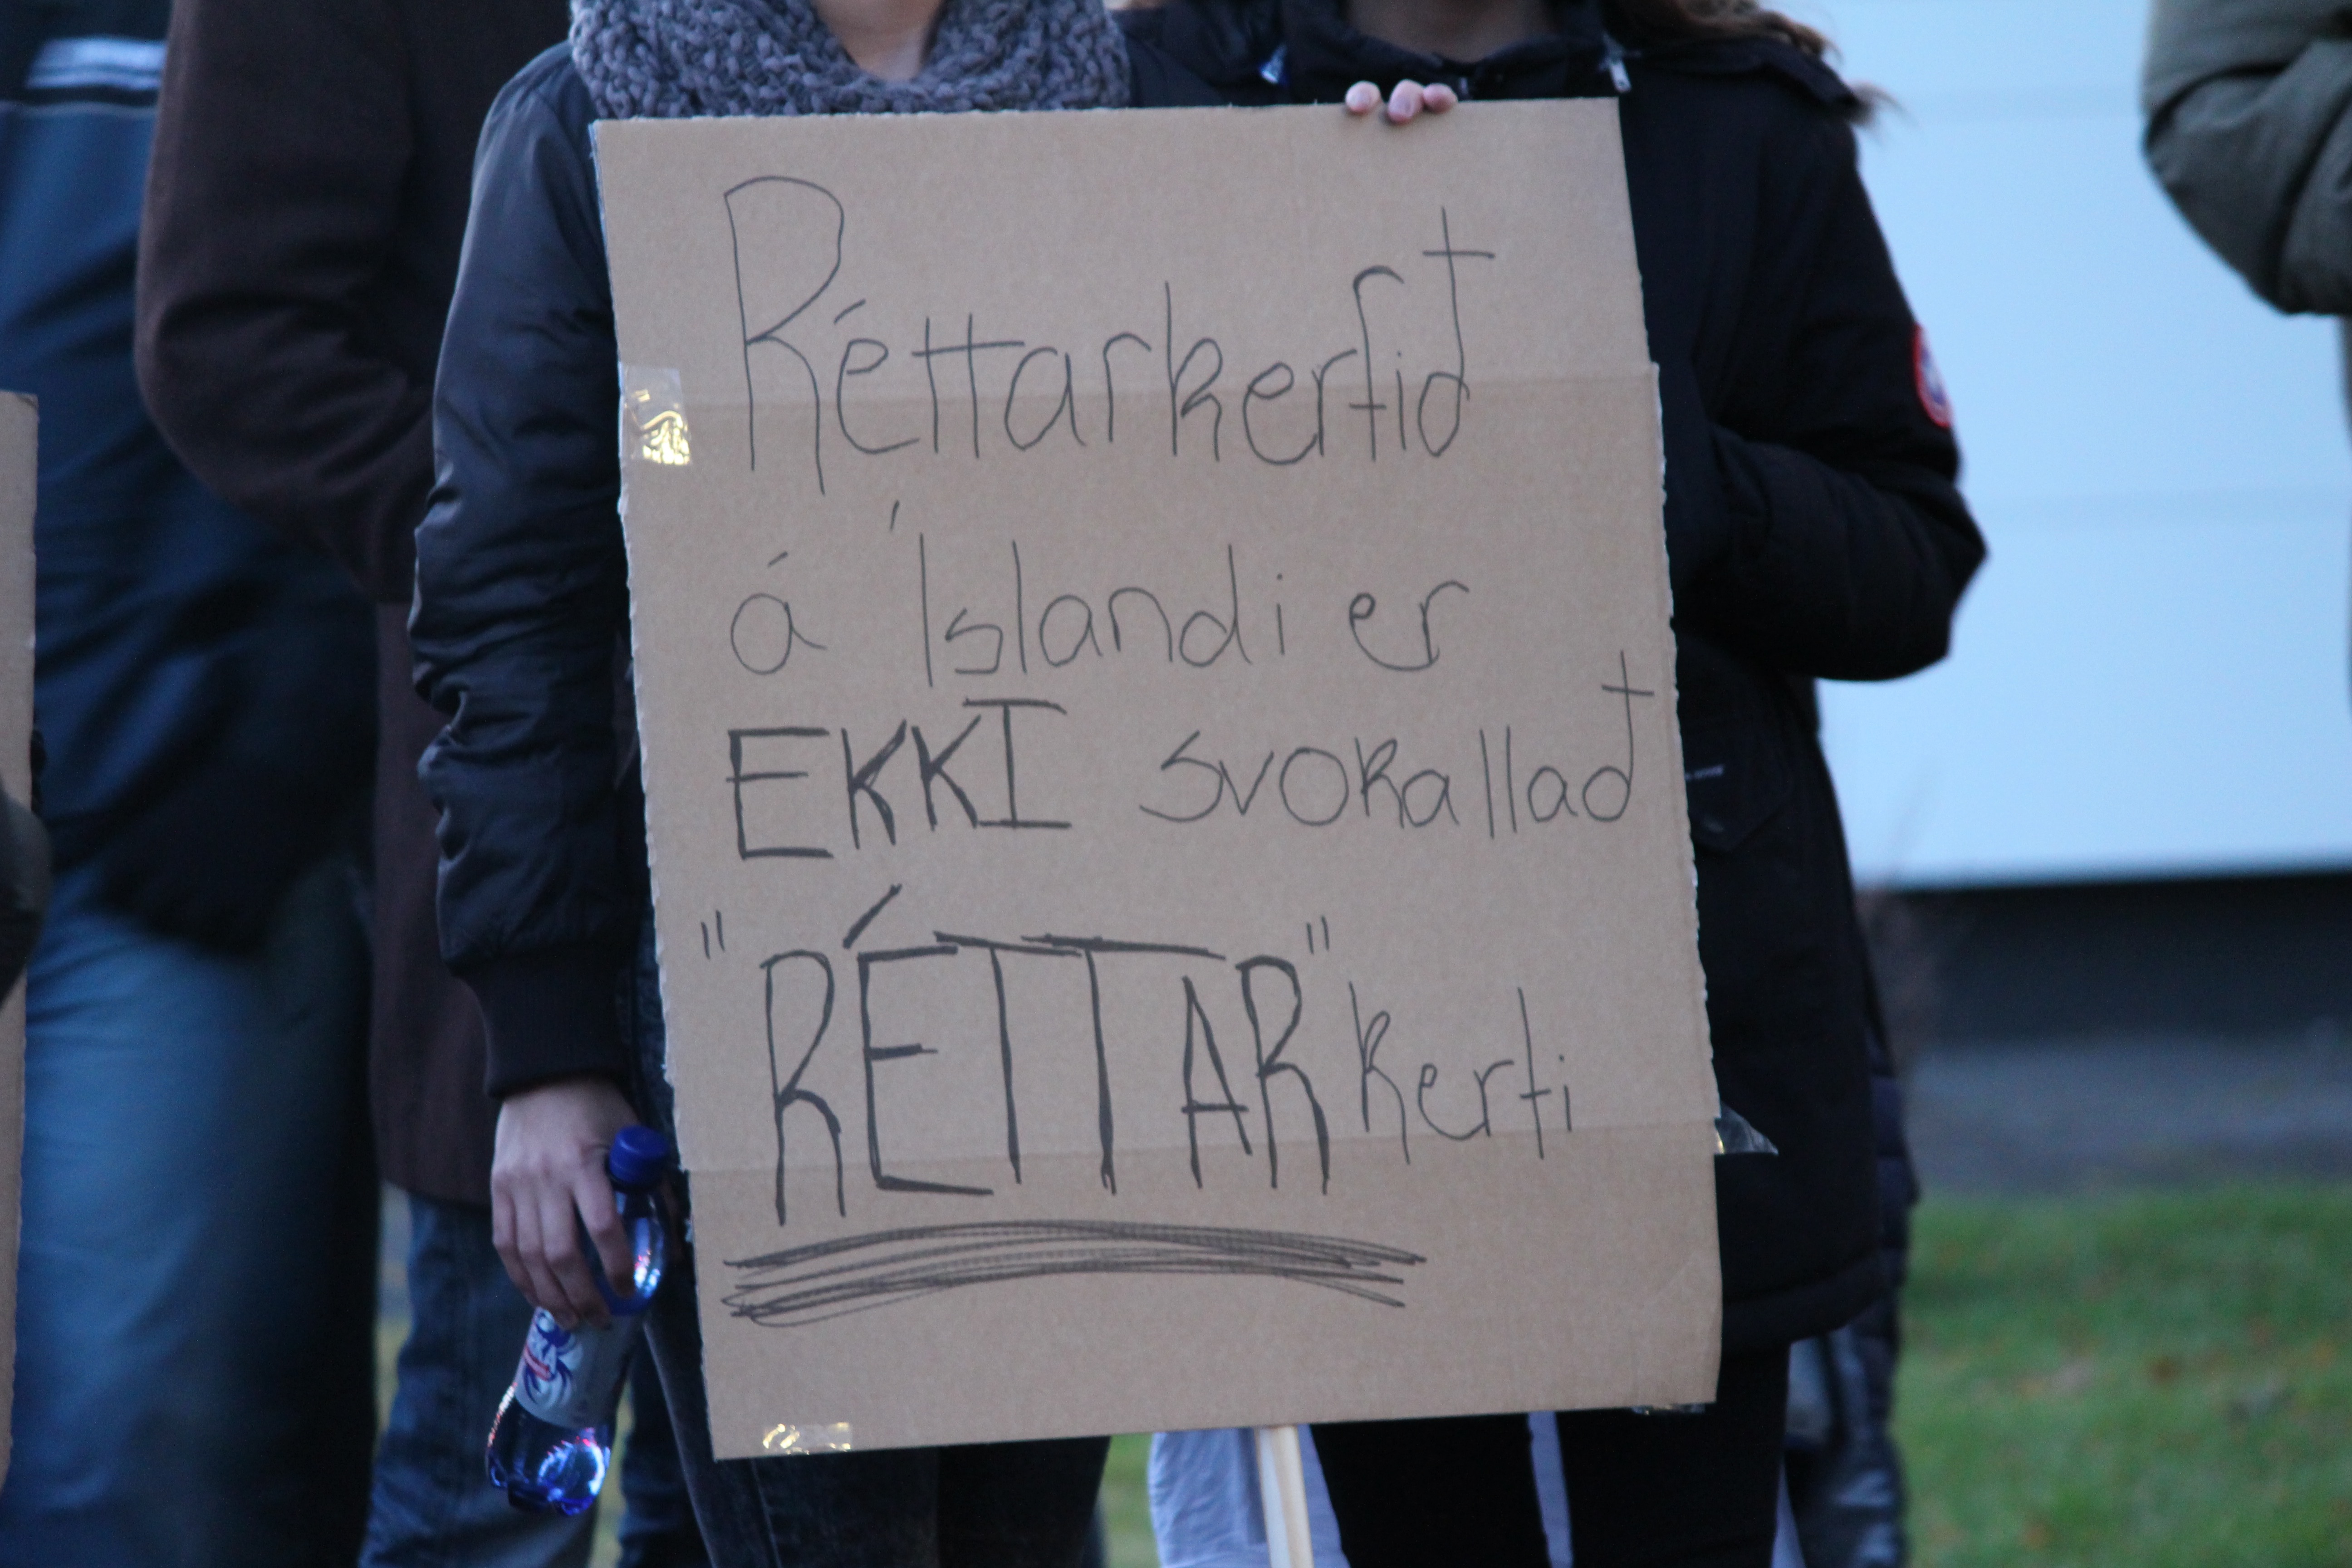 Réttarkerfið
á Íslandi er
EKKI svokallað
"RÉTTAR" kerfi